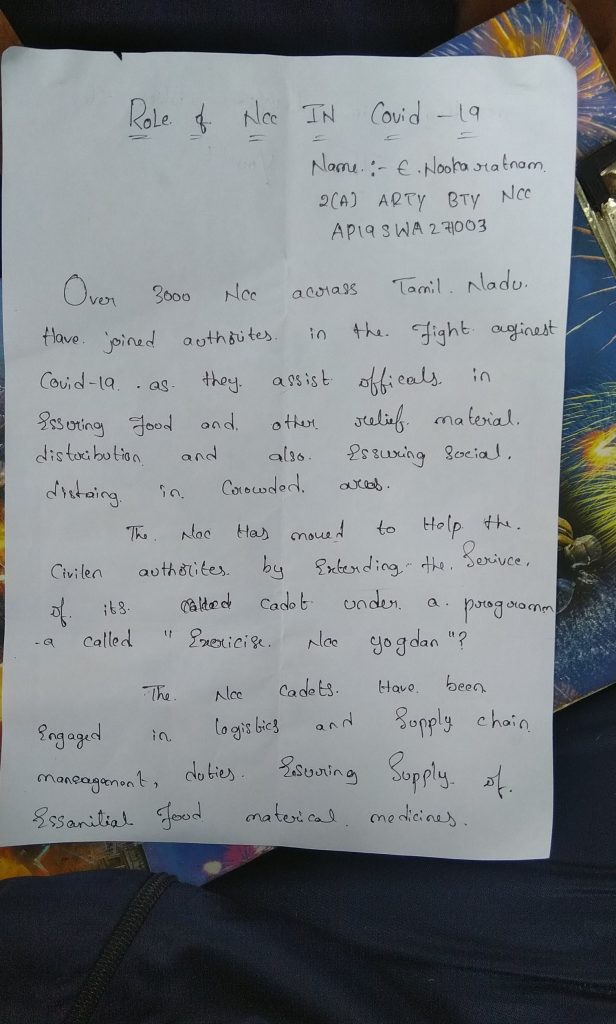 Role of Ncc IN Covid -19
Name. :- E. Nookaratnam.
2(A) ARTY BTY NCC
AP19SWA271003
Over 3000 Ncc acorass Tamil. Nadu.
Have. joined authoites. in the. Fight aginest
Covid-19. . as. they. assist officals. in
Essoring Food and. other relief. material.
distoribution. and also. Essuring Social.
distaing. in. Corowded. areas.
The. Ncc Has moved to Help the.
Civilen authoites. by Extending. the. Serivce.
of its. cadet under. a. programm
-a called " Exericise. Ncc yogdan"?
The. Ncc Cadets. Have. been
Engaged in logistics and Supply chain
maneagement, duties. Esuring Supply. of.
Essanitial Food material. medicines.